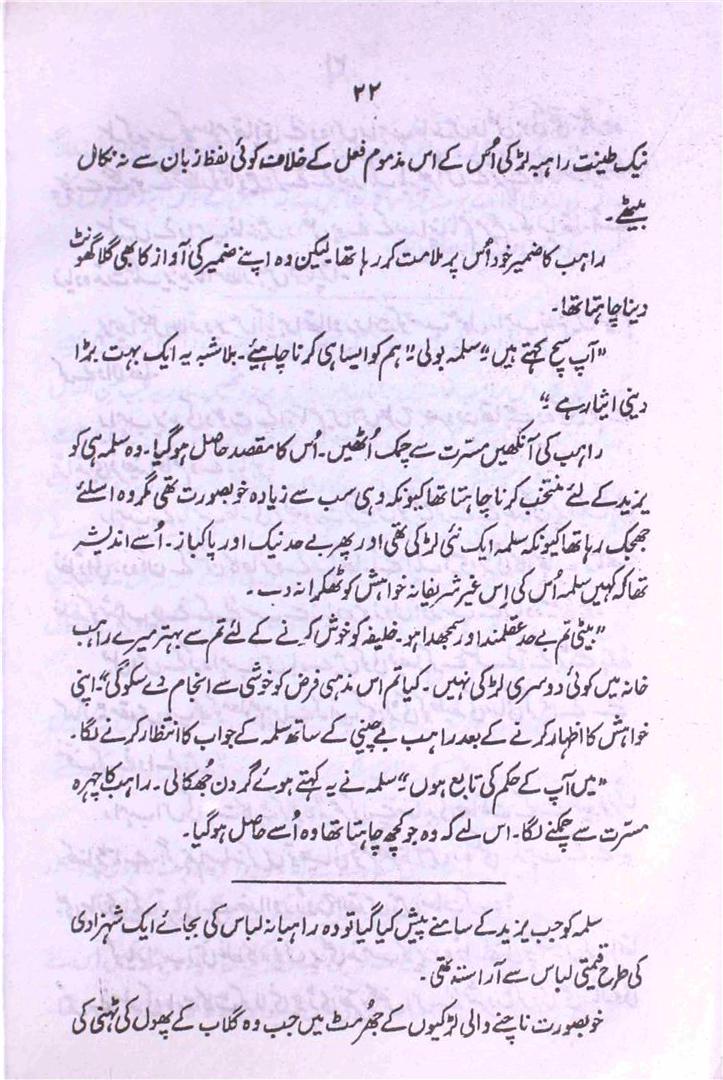 ۲۲
نیک طینت راہبہ لڑکی اُس کے اس مذموم فعل کے خلاف کوئی لفظ زبان سے نہ نکال
بیٹھے۔
راہب کا ضمیر خود اُس پر ملامت کر رہا تھا لیکن وہ اپنے ضمیر کی آواز کا بھی گلا گھونٹ
دینا چاہتا تھا۔
"آپ سچ کہتے ہیں" سلمہ بولی "ہم کو ایسا ہی کرنا چاہیئے۔ بلاشبہ یہ ایک بہت بڑا
دینی ایثار ہے"
راہب کی آنکھیں مسرت سے چمک اُٹھیں۔ اُس کا مقصد حاصل ہوگیا۔ وہ سلمہ ہی کو
یزید کے لئے منتخب کرنا چاہتا تھا کیونکہ وہی سب سے زیادہ خوبصورت تھی مگر وہ اسلئے
جھجک رہا تھا کیونکہ سلمہ ایک نئی لڑکی تھی اور پھر بے حد نیک اور پاکباز۔ اُسے اندیشہ
تھا کہ کہیں سلمہ اُس کی اِس غیر شریفانہ خواہش کو ٹھکرا نہ دے۔
"بیٹی تم بے حد عقلمند اور سمجھدار ہو۔ خلیفہ کو خوش کرنے کے لئے تم سے بہتر میرے راہب
خانہ میں کوئی دوسری لڑکی نہیں۔ کیا تم اس مذہبی فرض کو خوشی سے انجام دے سکو گی" اپنی
خواہش کا اظہار کرنے کے بعد راہب بے چینی کے ساتھ سلمہ کے جواب کا انتظار کرنے لگا۔
"میں آپ کے حکم کی تابع ہوں" سلمہ نے یہ کہتے ہوئے گردن جھکا لی۔ راہب کا چہرہ
مسرت سے چمکنے لگا۔ اس لئے کہ وہ جو کچھ چاہتا تھا وہ اُسے حاصل ہوگیا۔
سلمہ کو جب یزید کے سامنے پیش کیا گیا تو وہ راہبانہ لباس کی بجائے ایک شہزادی
کی طرح قیمتی لباس سے آراستہ تھی۔
خوبصورت ناچنے والی لڑکیوں کے جھرمٹ میں جب وہ گلاب کے پھول کی ٹہنی کی